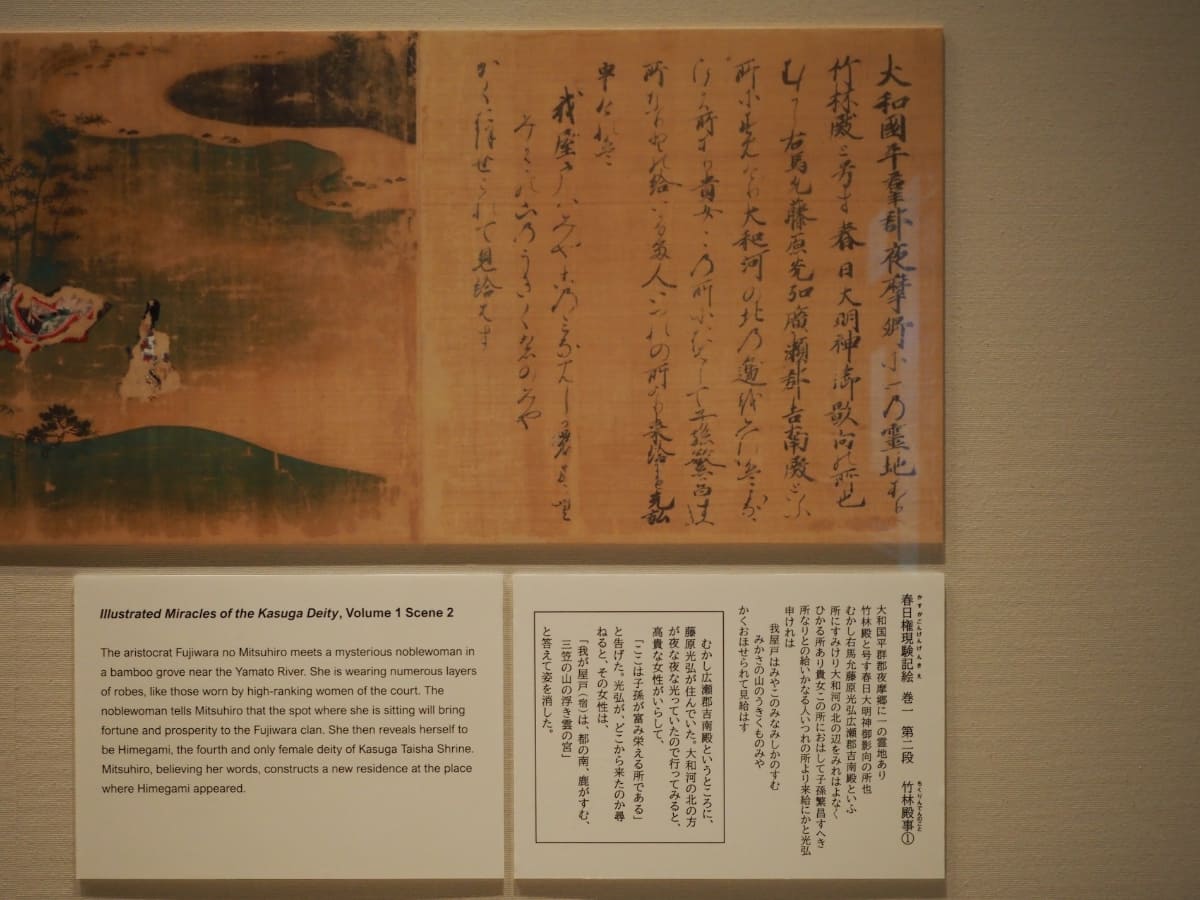 大和國平群郡夜摩郷に一の霊地あり
竹林殿と号す春日大明神御影向の所也
むかし右馬允藤原光弘廣瀬郡吉南殿といふ
所にすみけり大和河の北の邊をみれはよなく
ひかる所あり貴女この所におはして子孫繁昌すへき
所なりとの給いかなる人いつれの所より来給にかと光弘
申けれは
我屋戸はみやこのみなみしかのすむ
みかさの山のうきくものみや
かくおほせられて見給はす
Illustrated Miracles of the Kasuga Deity, Volume 1 Scene 2
The aristocrat Fujiwara no Mitsuhiro meets a mysterious noblewoman in
a bamboo grove near the Yamato River. She is wearing numerous layers
of robes, like those worn by high-ranking women of the court. The
noblewoman tells Mitsuhiro that the spot where she is sitting will bring
fortune and prosperity to the Fujiwara clan. She then reveals herself to
be Himegami, the fourth and only female deity of Kasuga Taisha Shrine.
Mitsuhiro, believing her words, constructs a new residence at the place
where Himegami appeared.
かすがごんげんげんきえ
春日権現験記絵 巻一 第二段 竹林殿事①
ちくりんでんのこと
大和国平群郡夜摩郷に一の霊地あり
竹林殿と号す春日大明神御影向の所也
むかし右馬允藤原光弘広瀬郡吉南殿といふ
所にすみけり大和河の北の辺をみれはよなく
ひかる所あり貴女この所におはして子孫繁昌すへき
所なりとの給いかなる人いつれの所より来給にかと光弘
申けれは
我屋戸はみやこのみなみしかのすむ
みかさの山のうきくものみや
かくおほせられて見給はす
むかし広瀬郡吉南殿というところに、
藤原光弘が住んでいた。大和河の北の方
が夜な夜な光っていたので行ってみると、
高貴な女性がいらして、
「ここは子孫が富み栄える所である」
と告げた。光弘が、どこから来たのか尋
ねると、その女性は、
「我が屋戸（宿）は、都の南、鹿がすむ、
三笠の山の浮き雲の宮」
と答えて姿を消した。